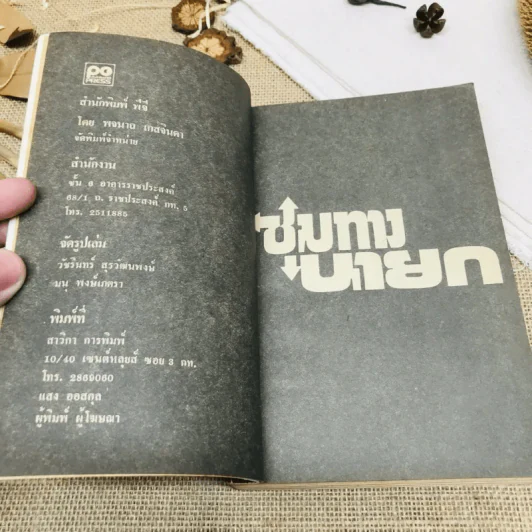 สำนักพิมพ์ พีจี
โดย พจนาถ เกสจินดา
จัดพิมพ์จำหน่าย
สำนักงาน
ชั้น 6 อาคารราชประสงค์
68/1 ถ. ราชประสงค์ กท. 5
โทร. 2511885
จัดรูปเล่ม
วัชรินทร์
มนู พงษ์เภตรา
พิมพ์ที่
สาริกา การพิมพ์
10/40 เซนต์หลุยส์ ซอย 3 กท.
โทร. 2869060
แสง ออสกุล
ผู้พิมพ์ ผู้โฆษณา
ซุ้มทาง
นายก